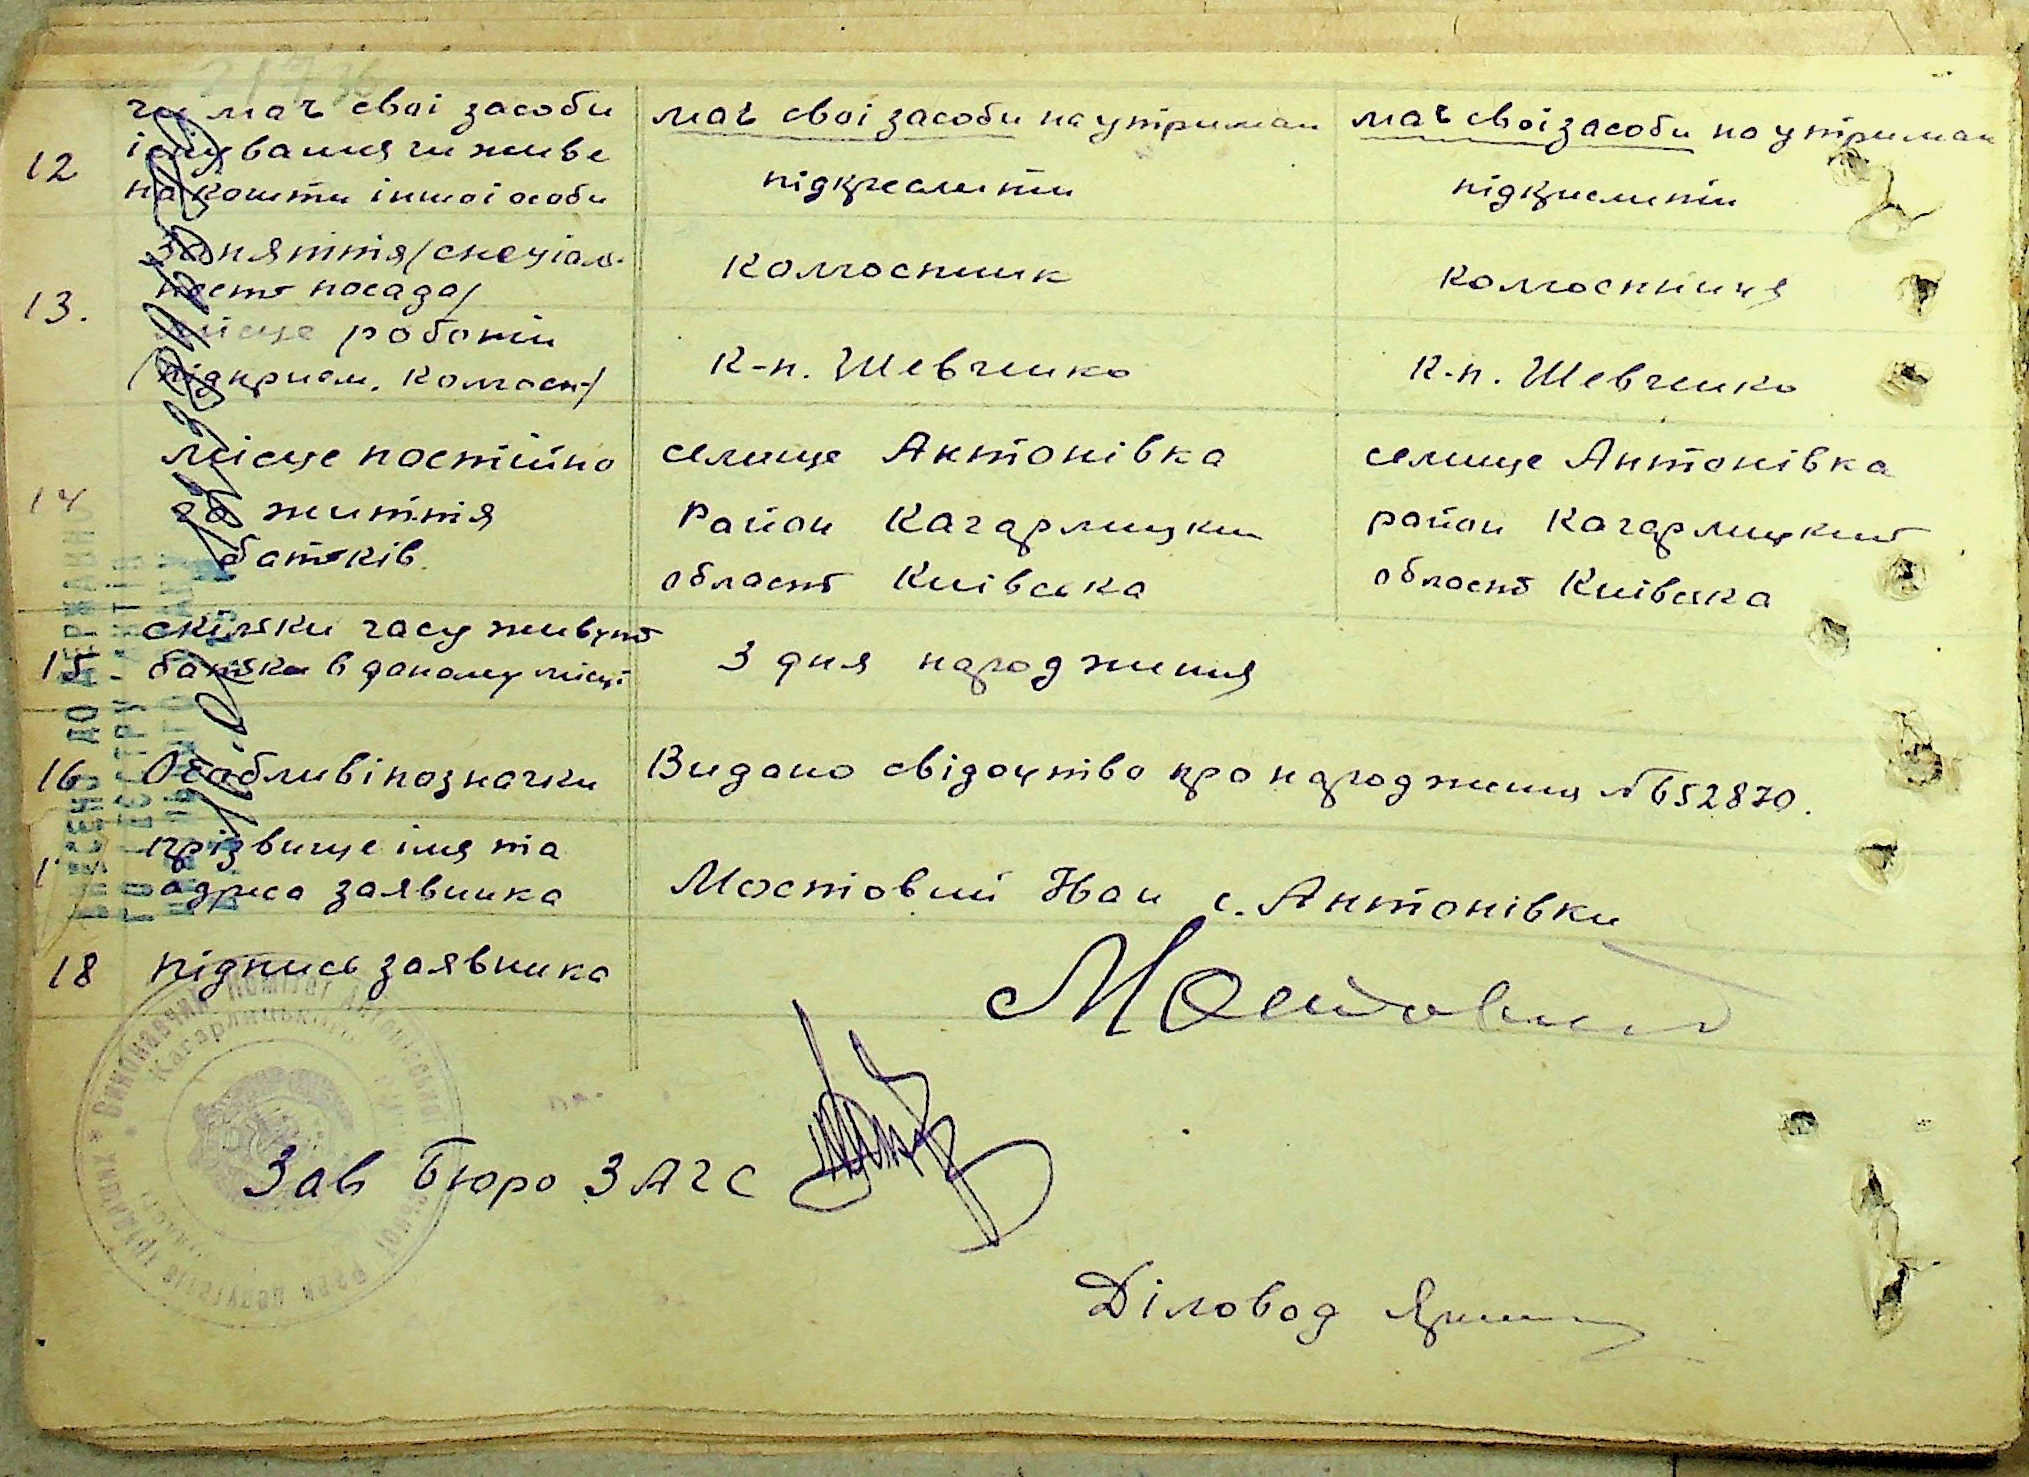 12
чи має свої засоби
існування чи живе
на кошти іншої особи
має свої засоби на утриман
підкреслити
має свої засоби на утриман
підкреслити
13.
Заняття /спеціаль-
ность посада/
колгоспник
колгоспниця
місце роботи
/підприєм. колгосп-/
К-п. Шевченко
К-п. Шевченко
14
місце постійно
го життя
батьків.
селище Антонівка
Район Кагарлицкий
область Київська
селище Антонівка
район Кагарлицкий
область Київска
15
скільки часу живуть
батьки в даному місці
З дня народження
16
Особливі позначки
Видано свідоцтво про народження № 652870.
1
прізвище імя та
адреса заявника
Мостовий Іван с. Антонівки
18
підпись заявника
Мостовий
Зав Бюро ЗАГС
Діловод
ВНЕСЕНО ДО ДЕРЖАВНО
ГО РЕЄСТРУ
* Виконавчий комітет Антонівської
Кагарлицького
Ради депутатів трудящих